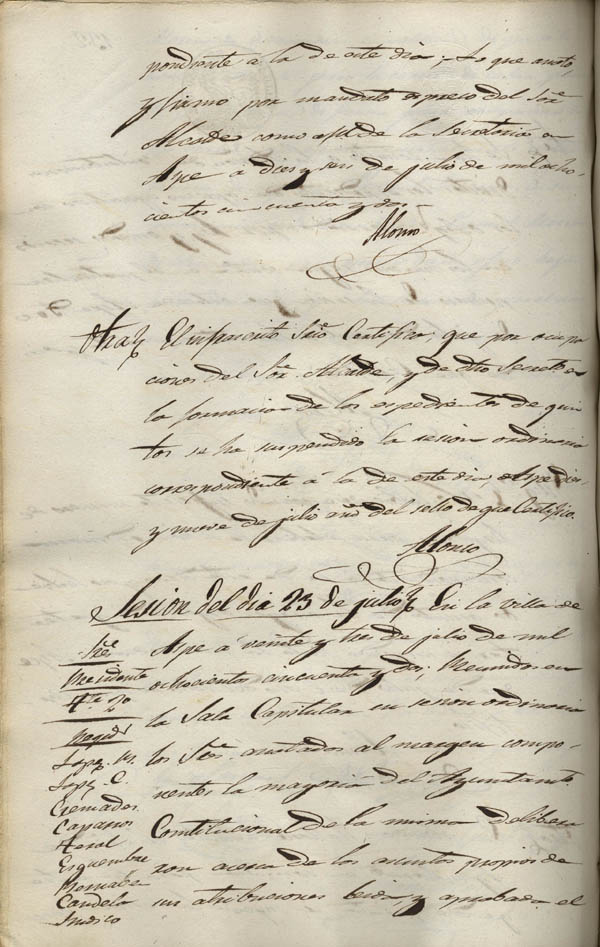 pondiente a la de este dia; lo que anoto,
y firmo por mandato espreso del Sor
Alcalde como apl de la Secretaria en
Aspe a diez y seis de julio de mil ocho-
cientos cincuenta y dos.-
Alonso
Otra} El infrascrito Srio Certifico; que por ocupa
ciones del Sor Alcalde, y de dho Secreto en
la formacion de los espedientes de quin
tos se ha suspendido la sesion ordinaria
correspondiente á la de este dia. Aspe diez
y nueve de julio año del sello de que Certifico.
Alonso
Sesion del dia 23 de julio} En la villa de
Aspe á veinte y tres de julio de mil
ochocientos cincuenta y dos; Reunidos en
la Sala Capitular en sesion ordinaria
los Sres anotados al margen compo-
nentes la mayoria del Ayuntamto
Constitucional de la misma delibera
ron acerca de los asuntos propios de
sus atribuciones leida, y aprobada el
Sres
Presidente
Regid
Lopez M.
Lopez C.
Cremades
Caparros
Esquembre
Candela
Sindico